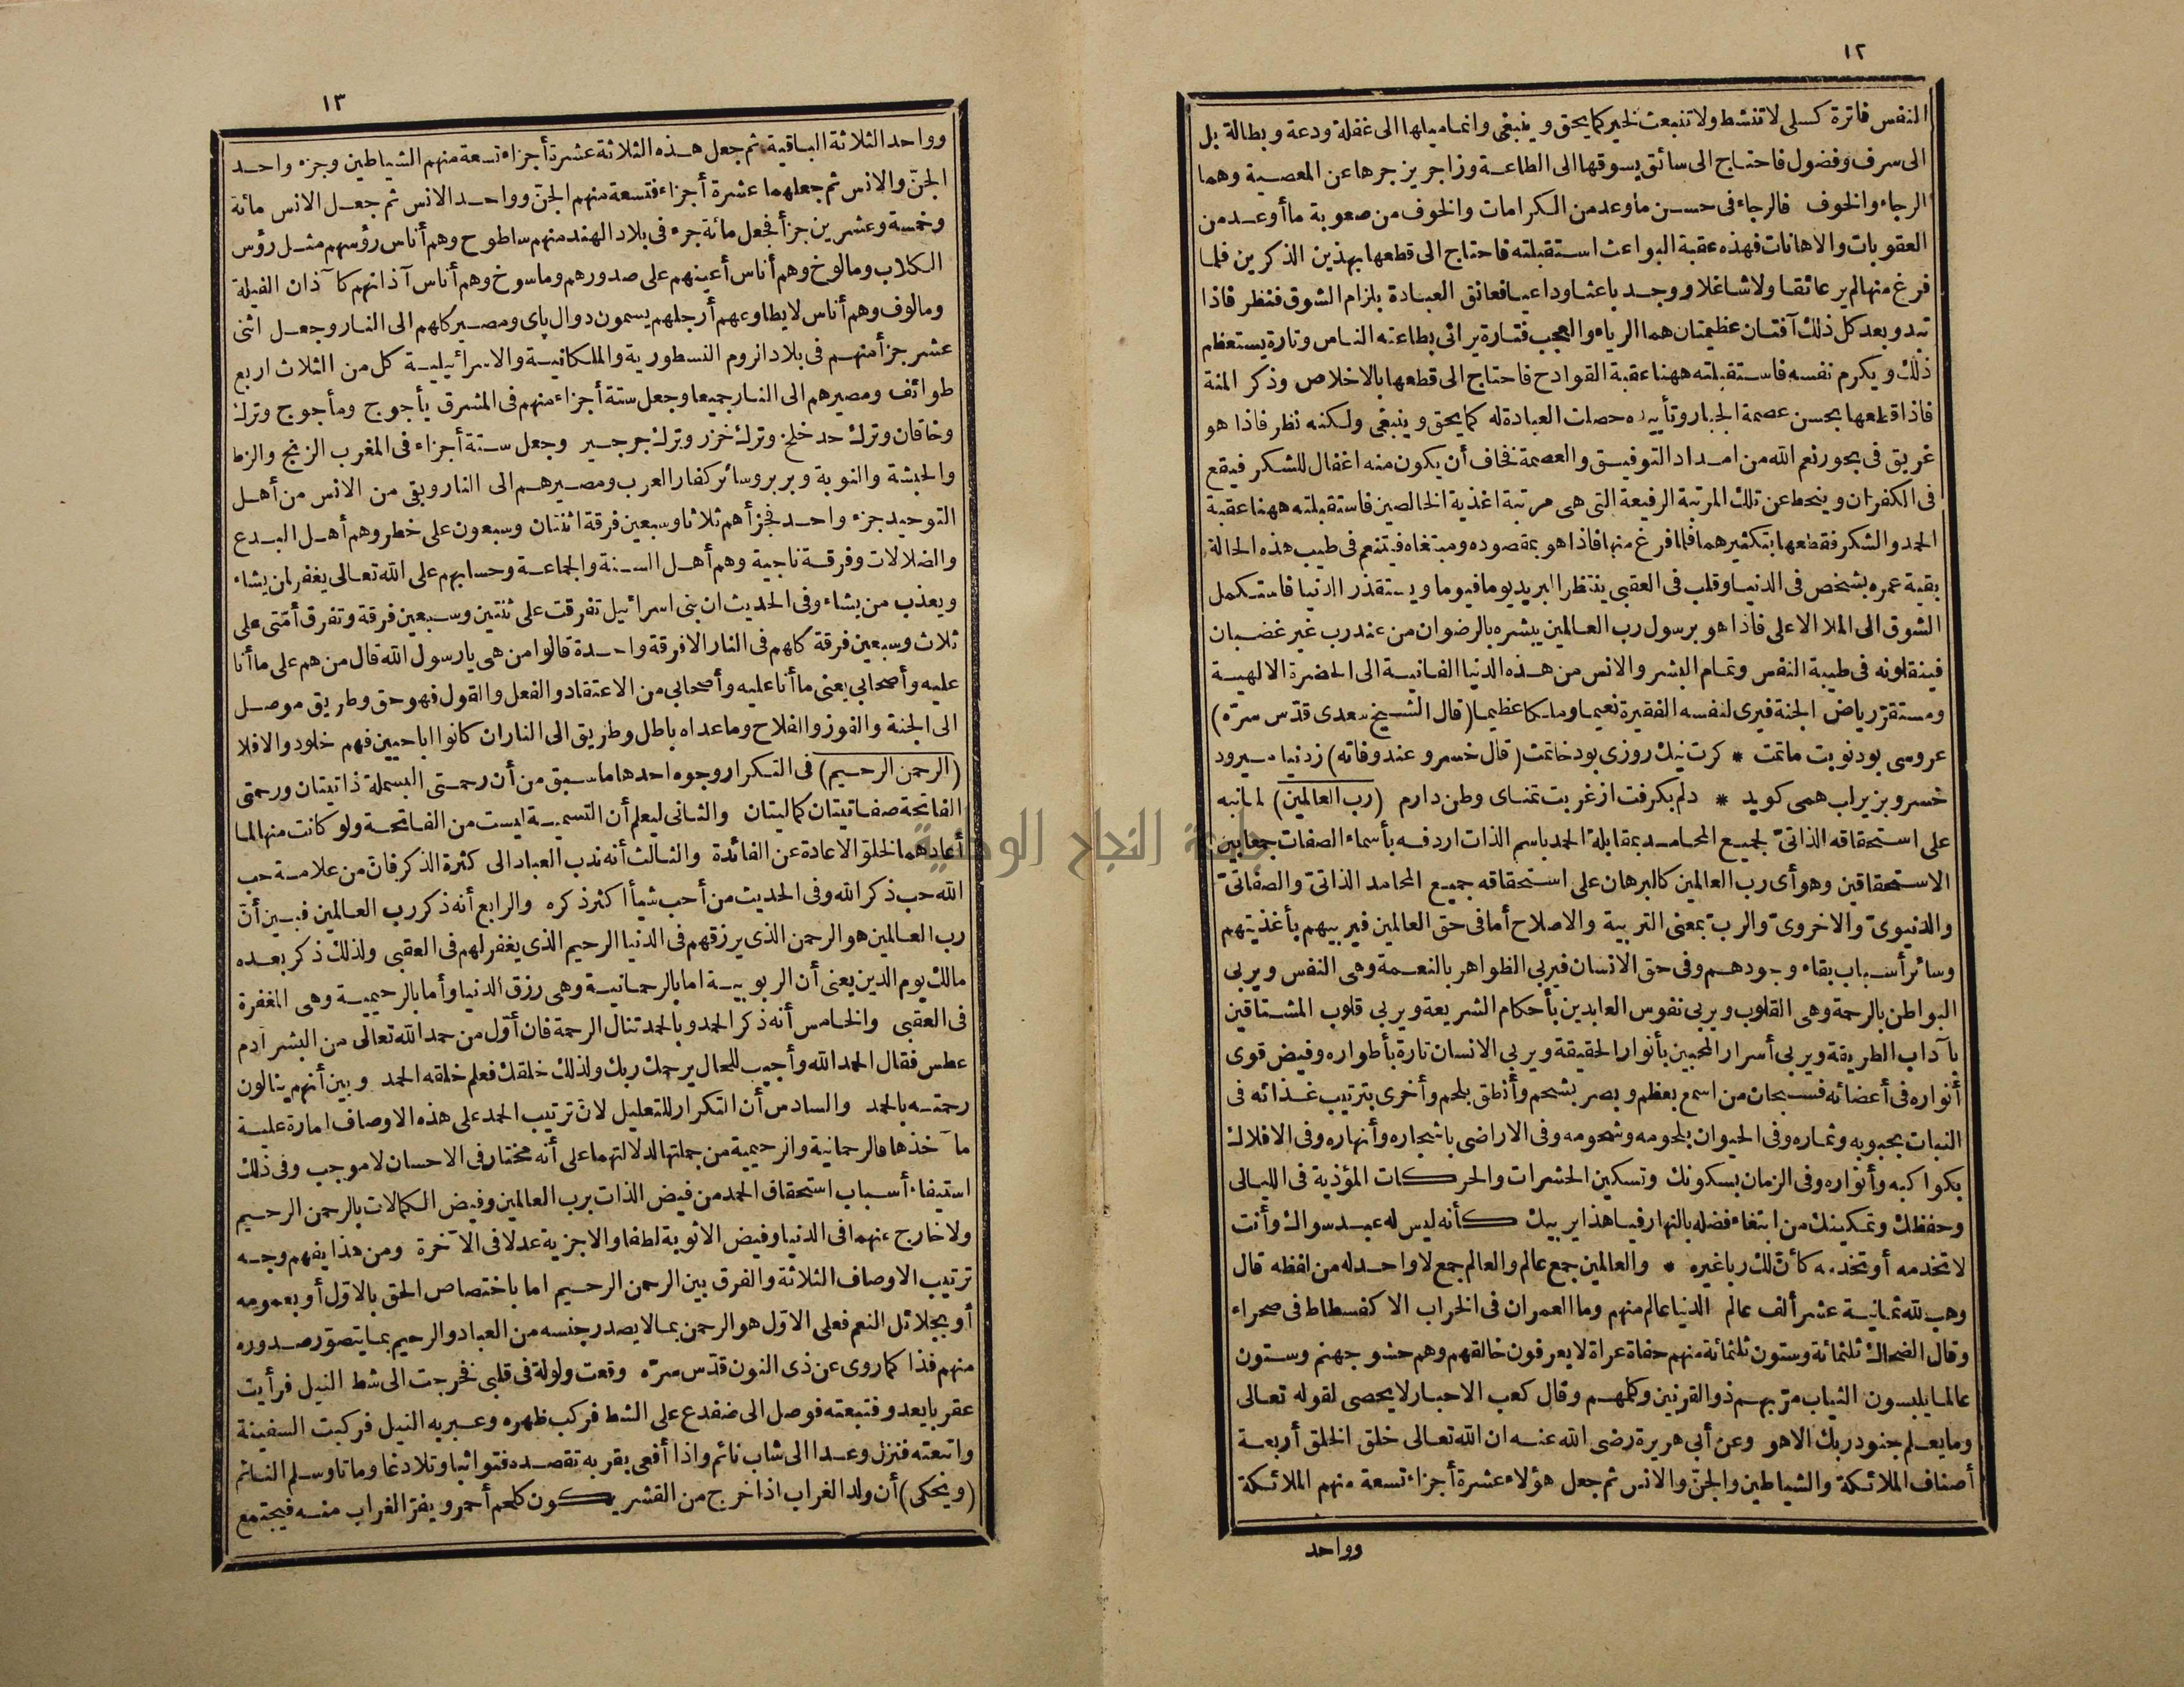 ١٢
النفس فاترة كسلى لا تنشط ولا تنبعث لخير كما يحق وينبغى وانما ميلها الى غفلة ودعة وبطالة بل
الى سرف وفضول فاحتاج الى سائق يسوقها الى الطاعة وزاجر يزجرها عن المعصية وهما
الرجاء والخوف فالرجاء فى حسن ما وعد من الكرامات والخوف من صعوبة ما أوعد من
العقوبات والاهانات فهذه عقبة البواعث استقبلته فاحتاج الى قطعها بهذين الذكرين فلما
فرغ منها لم ير عائقا ولا شاغلا ووجد باعثا وداعيا فعانق العبادة بلزام الشوق فنظر فاذا
تبدو بعد كل ذلك آفتان عظيمتان هما الرياء والعجب فتارة يرائى بطاعته الناس وتارة يستعظم
ذلك ويكرم نفسه فاستقبلته ههنا عقبة القوادح فاحتاج الى قطعها بالاخلاص وذكر المنة
فاذا قطعها بحسن عصمة الجبار وتأييده حصلت العبادة له كما يحق وينبغى ولكنه نظر فاذا هو
غريق فى بحور نعم الله من امداد التوفيق والعصمة فخاف أن يكون منه اغفال للشكر فيقع
فى الكفران وينحط عن تلك المرتبة الرفيعة التى هى مرتبة اغذية الخالصين فاستقبلته ههنا عقبة
الحمد والشكر فقطعها بتكثيرهما فلما فرغ منها فاذا هو بمقصوده ومبتغاه فيتنعم فى طيب هذه الحالة
بقية عمره بشخص فى الدنيا وقلب فى العقبى ينتظر البريد يوما فيوما ويستقذر الدنيا فاستكمل
الشوق الى الملا الاعلى فاذا هو برسول رب العالمين يبشره بالرضوان من عند رب غير غضبان
فينقلونه فى طيبة النفس وتمام البشر والانس من هذه الدنيا الفانية الى الحضرة الالهية
ومستقر رياض الجنة فيرى لنفسه الفقيرة نعيما وملكا عظيما (قال الشيخ سعدى قدّس سرّه)
عروسى بود نوبت ماتمت * كرت نيك روزى بود خاتمت (قال خسرو عند وفاته) زدنيا ميرود
خسرو بزير لب همى كويد * دلم بكرفت از غربت تمناى وطن دارم (رب العالمين) لما نبه
على استحقاقه الذاتىّ لجميع المحامد بمقابلة الحمد باسم الذات اردفه بأسماء الصفات جمعا بين
الاستحقاقين وهو أى رب العالمين كالبرهان على استحقاقه جميع المحامد الذاتىّ والصفاتىّ
والدنيوىّ والاخروىّ والرب بمعنى التربية والاصلاح أما فى حق العالمين فيربيهم بأغذيتهم
وسائر أسباب بقاء وجودهم وفى حق الانسان فيربى الظواهر بالنعمة وهى النفس ويربى
البواطن بالرحمة وهى القلوب ويربى نفوس العابدين بأحكام الشريعة ويربى قلوب المشتاقين
بآداب الطريقة ويربى أسرار المحبين بأنوار الحقيقة ويربى الانسان تارة بأطواره وفيض قوى
أنواره فى أعضائه فسبحان من اسمع بعظم وبصر بشحم وأنطق بلحم وأخرى بترتيب غذائه فى
النبات بحبوبه وثماره وفى الحيوان بلحومه وشحومه وفى الاراضى باشجاره وأنهاره وفى الافلاك
بكواكبه وأنواره وفى الزمان بسكونك وتسكين الحشرات والحركات المؤذية فى الليالى
وحفظك وتمكينك من ابتغاء فضله بالنهار فيا هذا يربيك كأنه ليس له عبد سواك وأنت
لا تخدمه أو تخدمه كأنّ لك ربا غيره * والعالمين جمع عالم والعالم جمع لا واحد له من لفظه قال
وهب لله ثمانية عشر ألف عالم الدنيا عالم منهم وما العمران فى الخراب الا كفسطاط فى صحراء
وقال الضحاك ثلثمائة وستون ثلثمائة منهم حفاة عراة لا يعرفون خالقهم وهم حشو جهنم وستون
عالما يلبسون الثياب مرّ بهم ذو القرنين وكلمهم وقال كعب الاحبار لا يحصى لقوله تعالى
وما يعلم جنود ربك الا هو وعن أبى هريرة رضى الله عنه ان الله تعالى خلق الخلق أربعة
أصناف الملائكة والشياطين والجنّ والانس ثم جعل هؤلاء عشرة أجزاء تسعة منهم الملائكة
وواحد
١٣
وواحد الثلاثة الباقية ثم جعل هذه الثلاثة عشرة أجزاء تسعة منهم الشياطين وجزء واحد
الجنّ والانس ثم جعلهما عشرة أجزاء فتسعة منهم الجنّ وواحد الانس ثم جعل الانس مائة
وخمسة وعشرين جزأ فجعل مائة جزء فى بلاد الهند منهم ساطوح وهم أناس رؤسهم مثل رؤس
الكلاب ومالوخ وهم أناس أعينهم على صدورهم وماسوخ وهم أناس آذانهم كآذان الفيلة
ومالوف وهم أناس لا يطاوعهم أرجلهم يسمون دوال پاى ومصير كلهم الى النار وجعل اثنى
عشر جزأ منهم فى بلاد الروم النسطورية والملكانية والاسرائيلية كل من الثلاث اربع
طوائف ومصيرهم الى النار جميعا وجعل ستة أجزاء منهم فى المشرق يأجوج ومأجوج وترك
وخاقان وترك حد خلخ وترك خزر وترك جرجير وجعل ستة أجزاء فى المغرب الزنج والزط
والحبشة والنوبة وبربر وسائر كفار العرب ومصيرهم الى النار وبقى من الانس من أهل
التوحيد جزء واحد فجزأهم ثلاثا وسبعين فرقة اثنتان وسبعون على خطر وهم أهل البدع
والضلالات وفرقة ناجية وهم أهل السنة والجماعة وحسابهم على الله تعالى يغفر لمن يشاء
ويعذب من يشاء وفى الحديث ان بنى اسرائيل تفرقت على ثنتين وسبعين فرقة وتفرق أمّتى على
ثلاث وسبعين فرقة كلهم فى النار الا فرقة واحدة قالوا من هى يا رسول الله قال من هم على ما أنا
عليه وأصحابى يعنى ما أنا عليه وأصحابى من الاعتقاد والفعل والقول فهو حق وطريق موصل
الى الجنة والفوز والفلاح وما عداه باطل وطريق الى النار ان كانوا اباحيين فهم خلود والا فلا
(الرحمن الرحيم) فى التكرار وجوه احدها ما سبق من أن رحمتى البسملة ذاتيتان ورحمتى
الفاتحة صفاتيتان كماليتان والثانى ليعلم أن التسمية ليست من الفاتحة ولو كانت منها لما
أعادهما لخلوّ الاعادة عن الفائدة والثالث أنه ندب العباد الى كثرة الذكر فان من علامة حب
الله حب ذكر الله وفى الحديث من أحب شيأ أكثر ذكره والرابع أنه ذكر رب العالمين فبين أنّ
رب العالمين هو الرحمن الذى يرزقهم فى الدنيا الرحيم الذى يغفر لهم فى العقبى ولذلك ذكر بعده
مالك يوم الدين يعنى أن الربوبية اما بالرحمانية وهى رزق الدنيا وأما بالرحيمية وهى المغفرة
فى العقبى والخامس أنه ذكر الحمد وبالحمد تنال الرحمة فان أوّل من حمد الله تعالى من البشر آدم
عطس فقال الحمد لله وأجيب للحال يرحمك ربك ولذلك خلقك فعلم خلقه الحمد وبين أنهم ينالون
رحمته بالحمد والسادس أن التكرار للتعليل لانّ ترتيب الحمد على هذه الاوصاف امارة علية
مآخذها فالرحمانية والرحيمية من جملتها لدلالتهما على أنه مختار فى الاحسان لا موجب وفى ذلك
استيفاء أسباب استحقاق الحمد من فيض الذات برب العالمين وفيض الكمالات بالرحمن الرحيم
ولا خارج عنهما فى الدنيا وفيض الاثوبة لطفا والاجزية عدلا فى الآخرة ومن هذا يفهم وجه
ترتيب الاوصاف الثلاثة والفرق بين الرحمن الرحيم اما باختصاص الحق بالاوّل أو بعمومه
أو بجلائل النعم فعلى الاوّل هو الرحمن بما لا يصدر جنسه من العباد والرحيم بما يتصوّر صدوره
منهم فذا كما روى عن ذى النون قدّس سرّه وقعت ولولة فى قلبى فخرجت الى شط النيل فرأيت
عقربا يعدو فتبعته فوصل الى ضفدع على الشط فركب ظهره وعبر به النيل فركبت السفينة
واتبعته فنزل وعدا الى شاب نائم واذا أفعى بقربه تقصده فتواثبا وتلادغا وماتا وسلم النائم
(ويحكى) أن ولد الغراب اذا خرج من القشر يكون كلحم أحمر ويفرّ الغراب منه فيجتمع